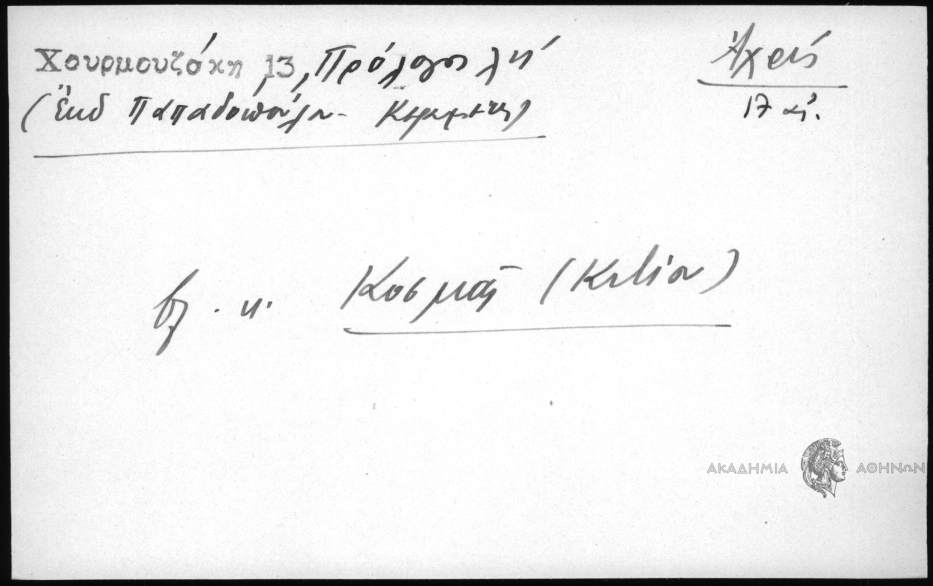 Χουρμουζάκη 13, Πρόλογος λη'
(Ἐκδ Παπαδοπούλου- Κεραμέως)
Ἀχρίς
17 αἰ.
βλ. κ. Κοσμᾶς (Κιτίου)
ΑΚΑΔΗΜΙΑ ΑΘΗΝΩΝ